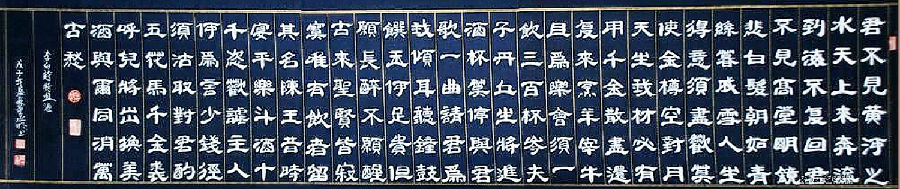 君不見黃河之
水天上來奔流
到海不復回君
不見高堂明鏡
悲白髮朝如青
絲暮成雪人生
得意須盡歡莫
使金樽空對月
天生我材必有
用千金散盡還
復來烹羊宰牛
且為樂會須一
飲三百杯岑夫
子丹丘生將進
酒杯莫停與君
歌一曲請君為
我傾耳聽鐘鼓
饌玉何足貴但
願長醉不願醒
古來聖賢皆寂
寞惟有飲者留
其名陳王昔時
宴平樂斗酒十
千恣歡謔主人
何為言少錢徑
須沽取對君酌
五花馬千金裘
呼兒將出換美
酒與爾同消萬
古愁
李白詩將進酒
戊子